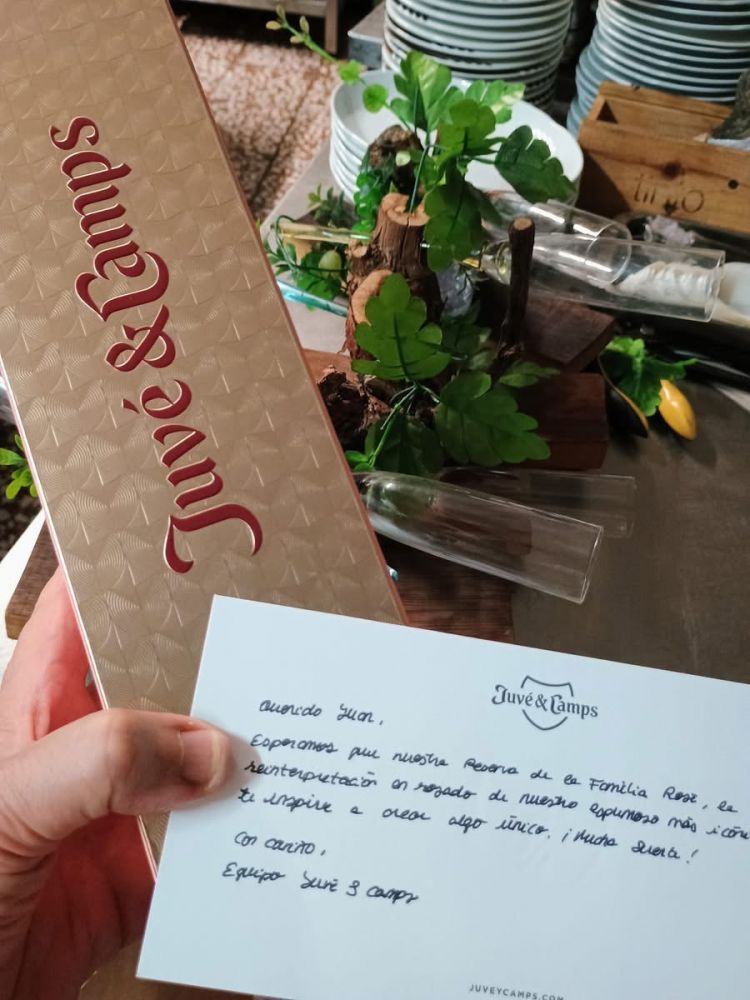 Juvé & Camps
Juvé & Camps
Querido Juan,
Esperamos que nuestra Reserva de la Familia Rosé, la
reinterpretación en rosado de nuestro espumoso más icón
te inspire a crear algo único. ¡Mucha suerte!
Con cariño,
Equipo Juvé & Camps
JUVEYCAMPS.COM